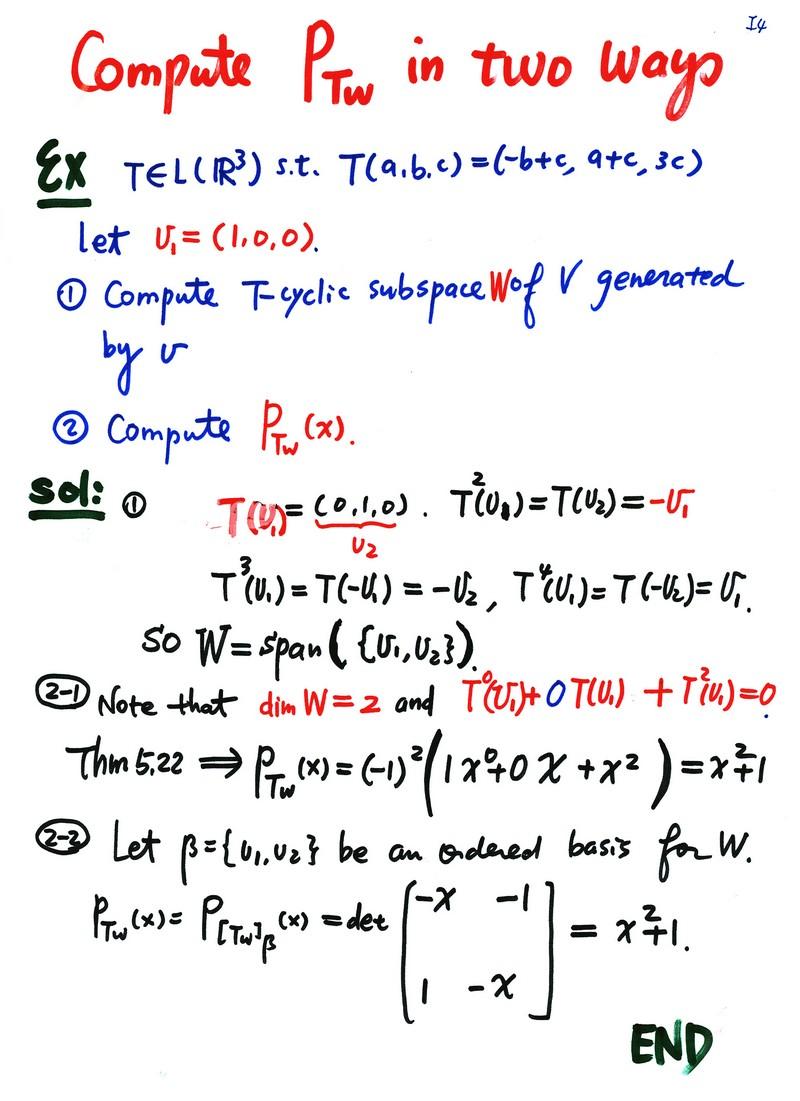 I4
Compute P_{T_W} in two ways
Ex T∈L(ℝ³) s.t. T(a,b,c)=(-b+c, a+c, 3c)
let υ₁=(1,0,0).
① Compute T-cyclic subspace W of V generated
by υ
② Compute P_{T_W}(x).
Sol: ① T(υ₁)=(0,1,0). T²(υ₁)=T(υ₂)=-υ₁
υ₂
T³(υ₁)=T(-υ₁)=-υ₂, T⁴(υ₁)=T(-υ₂)=υ₁.
So W=span({υ₁,υ₂}).
2-1 Note that dim W=2 and T⁰(υ₁)+0T(υ₁)+T²(υ₁)=0.
Thm 5.22 ⟹ P_{T_W}(x)=(-1)²(1x⁰+0x+x²)=x²+1
2-2 Let β={υ₁,υ₂} be an ordered basis for W.
P_{T_W}(x)=P_{[T_W]_β}(x)=det [-x -1
1 -x] = x²+1.
END